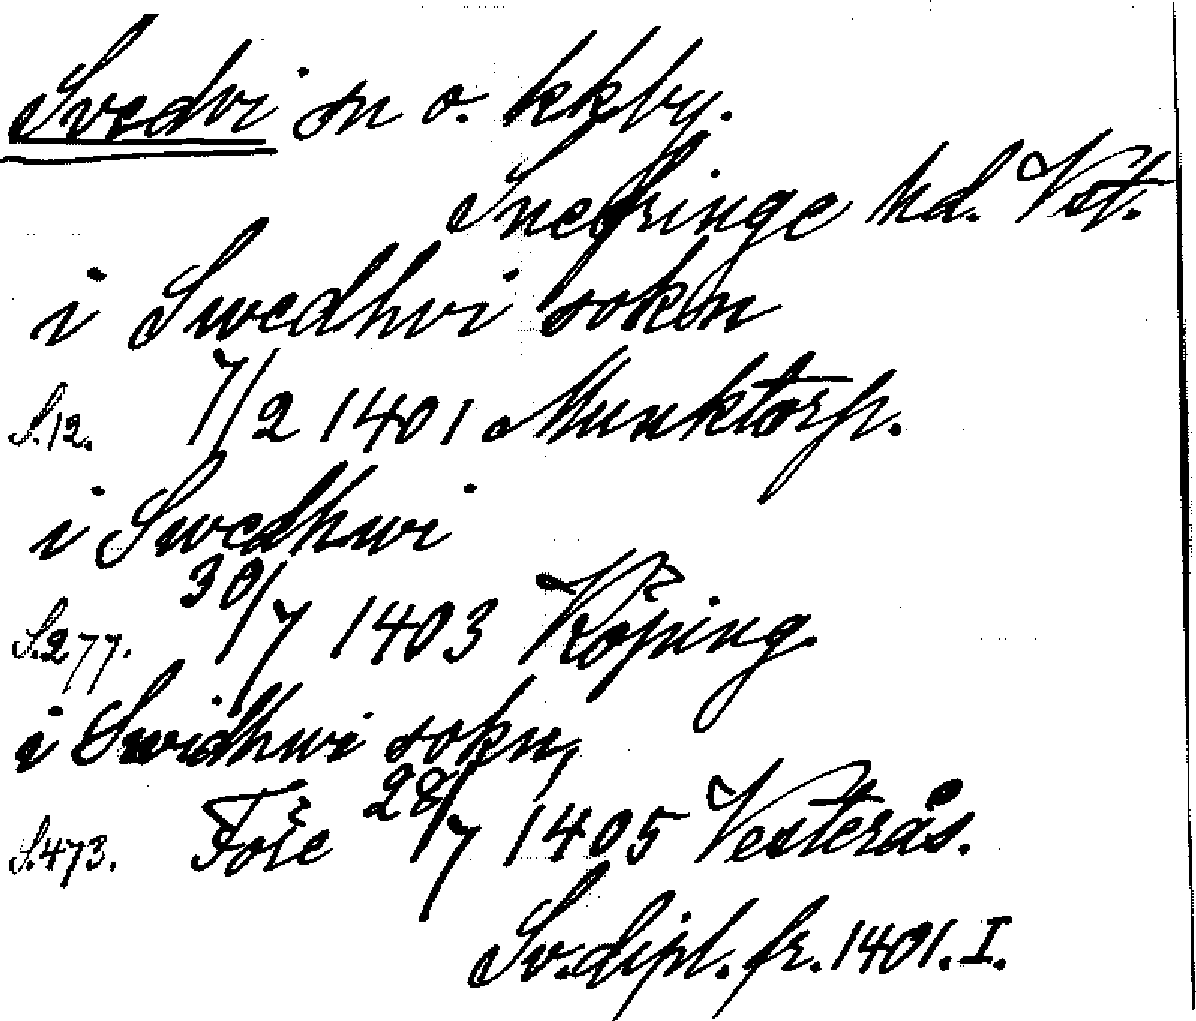 Svedvi sn o. kkby.
Snefringe hd. Vst.
i Swedhvi sokn
S.12. 7/2 1401 Munktorp.
i Swedhwi
S.277. 30/7 1403 Köping.
i Swidhwi sokn,
S.473. Före 28/7 1405 Vesterås.
Sv. dipl. fr. 1401. I.